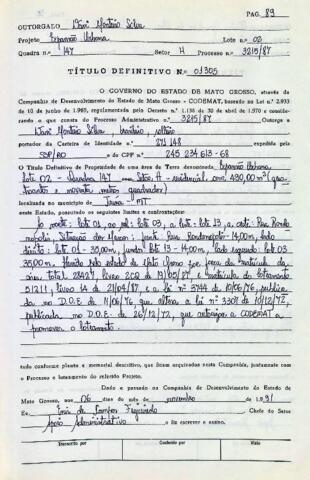 PAG. 89
OUTORGADO
Projeto Expansão Urbana Lote n.o 02
Quadra n.o 147 Setor H Processo n.o 3215/87
TÍTULO DEFINITIVO N.o 01305
O GOVERNO DO ESTADO DE MATO GROSSO, através da
Companhia de Desenvolvimento do Estado de Mato Grosso - CODEMAT, baseado na Lei n.o 2.933
de 10 de junho de 1969, regulamentada pelo Decreto n.o 1.138 de 30 de abril de 1.970 e conside-
rando o que consta do Processo Administrativo n.o 3215/87 Outorga a
Silva, brasileiro, solteiro
portador da Carteira de Identidade n.o 271148 expedida pela
SSP/RO e do CPF n.o 245 234 613-68
O Título Definitivo de Propriedade de uma área de Terra denominada: Expansão Urbana
lote 02 - Quadra 147 Setor H - residencial com 490,00 m² (qua
trocentos e noventa metros quadrados)
localizada no município de Juara - MT
neste Estado, possuindo os seguintes limites e confrontações:
ao norte: lote 01, ao sul: lote 03, a leste: lote 13, a oeste: Rua Rondo
nópolis, frente: Rua Rondonópolis - 14,00m, lado
direito: lote 01 - 35,00m, fundos lote 13 - 14,00m, lado esquerdo: lote 03
35,00m. Estado de Mato Grosso da matrícula da
área total 28427, livro 2CQ de 19/03/87 e matrícula do loteamento
51211, livro de 21/04/87, e a lei nº 3744 de 10/06/76, publica
da no D.O.E de 11/06/76 que altera a lei nº 3307 de 10/12/72,
publicada no D.O.E de 26/12/72, que autoriza a CODEMAT a
promover o loteamento.
tudo conforme planta e memorial descritivo, que ficam arquivados nesta Companhia, juntamente com
o Processo e loteamento do referido Projeto.
Dado e passado na Companhia de Desenvolvimento do Estado de
Mato Grosso, aos 06 dias do mês de novembro de 1.991
Eu, de Campos Figueiredo Chefe do Setor
Apoio Administrativo o fiz escrever e assino.
Transcrito por Conferido por Visto